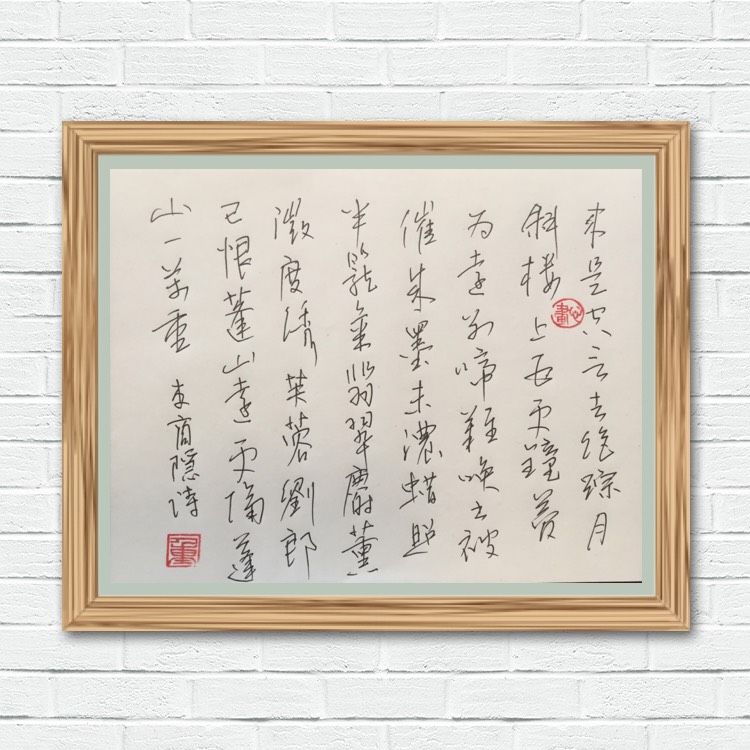 来是空言去绝踪月
斜楼上五更鐘夢
为遠别啼難唤书被
催成墨未濃蜡照
半籠金翡翠麝薰
微度绣芙蓉劉郎
已恨蓬山遠更隔蓬
山一萬重 李商隱诗